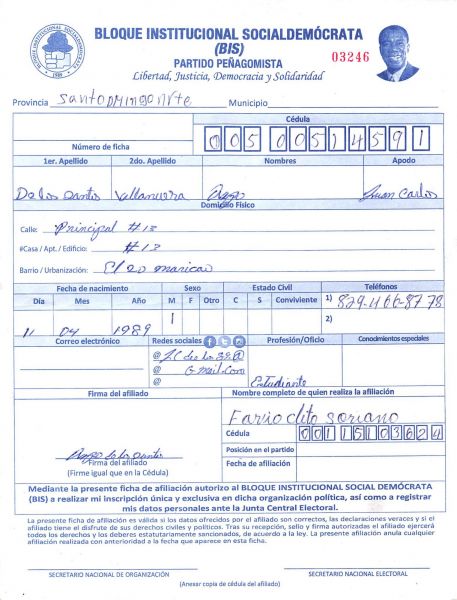 BLOQUE INSTITUCIONAL SOCIALDEMÓCRATA
(BIS)
PARTIDO PEÑAGOMISTA
Libertad, Justicia, Democracia y Solidaridad
03246
BLOQUE INSTITUCIONAL SOCIALDEMOCRATA
1989
Provincia Santo DMingo Nrte Municipio
Cédula
Número de ficha 005 0051459 1
1er. Apellido 2do. Apellido Nombres Apodo
De los Santos Villanueva Juan Carlos
Domicilio Físico
Calle: Principal #13
#Casa / Apt. / Edificio: #13
Barrio / Urbanización: El 20
Fecha de nacimiento Sexo Estado Civil Teléfonos
Día Mes Año M F Otro C S Conviviente 1) 829-466-8778
2)
11 04 1989 1
Correo electrónico Redes sociales Profesión/Oficio Conocimientos especiales
@
@ G-Mail-Com
@ Estudiante
Firma del afiliado Nombre completo de quien realiza la afiliación
Soriano
Cédula 00115103624
Posición en el partido
Firma del afiliado Fecha de afiliación
(Firme igual que en la Cédula)
Mediante la presente ficha de afiliación autorizo al BLOQUE INSTITUCIONAL SOCIAL DEMÓCRATA
(BIS) a realizar mi inscripción única y exclusiva en dicha organización política, así como a registrar
mis datos personales ante la Junta Central Electoral.
La presente ficha de afiliación es válida si los datos ofrecidos por el afiliado son correctos, las declaraciones veraces y si el
afiliado tiene el disfrute de sus derechos civiles y políticos. Tras su recepción, sello y firma autorizados el afiliado ejercerá
todos los derechos y los deberes estatutariamente sancionados, de acuerdo a la ley. La presente afiliación anula cualquier
afiliación realizada con anterioridad a la fecha que aparece en esta ficha.
SECRETARIO NACIONAL DE ORGANIZACIÓN SECRETARIO NACIONAL ELECTORAL
(Anexar copia de cédula del afiliado)